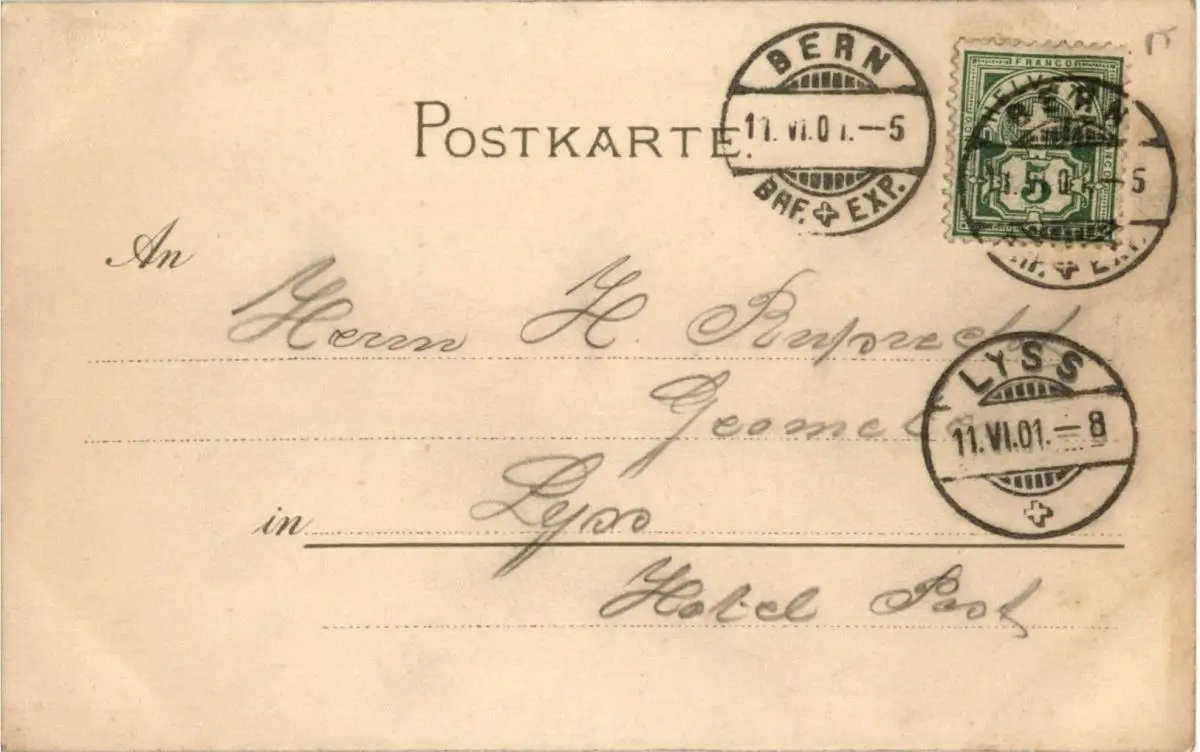 BERN
11.VI.01.–5
BHF. EXP.
FRANCO
HELVETIA
5
BERN
–5
EXP.
POSTKARTE.
An
Herrn H. Ruprecht
Geometer
LYSS
11.VI.01.–8
in Lyss
Hotel Post